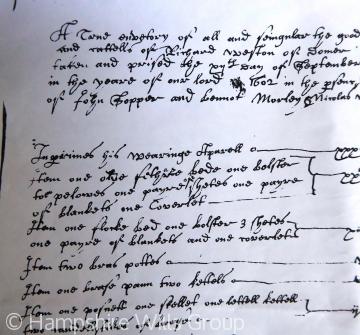 A True Invetory of all and singular the good
and cattells of Richard Weston of
taken and prised the xvjth day of September
in the yeare of our lord 1602 in the psenc
of John Hopper and Morley Nicolas
Inprimes his wearinge Aparell xxx
Item one olde fetherbede one bolster
too pelowes one payre shetes one payre
of blankets one Coverlet
Item one flocke bed one bolster 3 shetes
one payre of blankets and one coverlet
Item two bras pottes
Item one brasse pann two kettels
Item one posnett one skellet one kettell
© Hampshire Wills Group